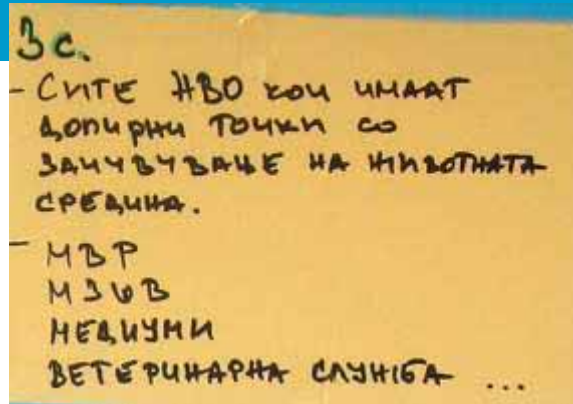 3с.
- СИТЕ НВО КОИ ИМААТ
ДОПИРНИ ТОЧКИ СО
ЗАЧУВУВАЊЕ НА ЖИВОТНАТА
СРЕДИНА.
- МВР
МЗШВ
МЕДИУМИ
ВЕТЕРИНАРНА СЛУЖБА ...